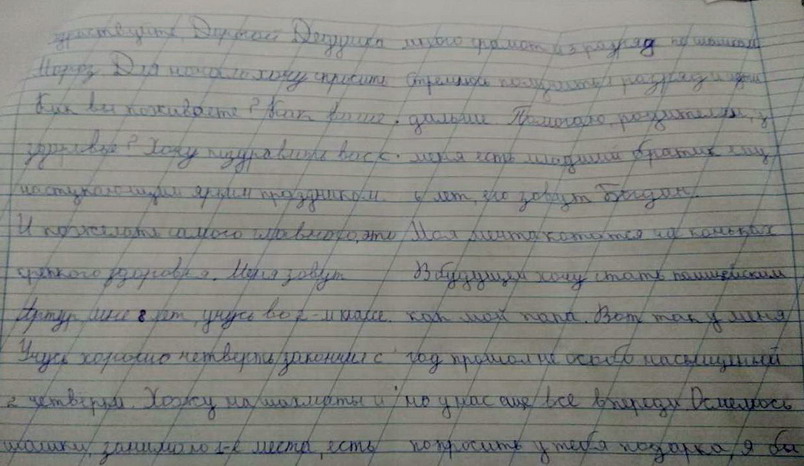 здраствуйте, Дорогой Дедушка
Мороз Для начала хочу спросить
Как вы поживаете? Как ваше
здоровье? Хочу поздравить вас с
наступающим ярким праздником.
И пожелать самого главного, это
крепкого здоровья. Меня зовут
Артур, мне 8 лет, учусь во 2-м классе.
Учусь хорошо четверть закончил с
2 четвёрки. Хожу на шахматы и
шашки, занимаю 1-е места, есть
много грамот и 3 разряд по шашкам
Стремлюсь получить 1 разряд и
дальше Помогаю родителям, у
меня есть младший братик ему
6 лет, его зовут Богдан.
Моя мечта кататся на коньках
В будущем хочу стать полицейским
как мой папа. Вот так у меня
год прошол не особо насыщеный
но у нас еще все впереди Осмелюсь
попросить у тебя подарка, я бы